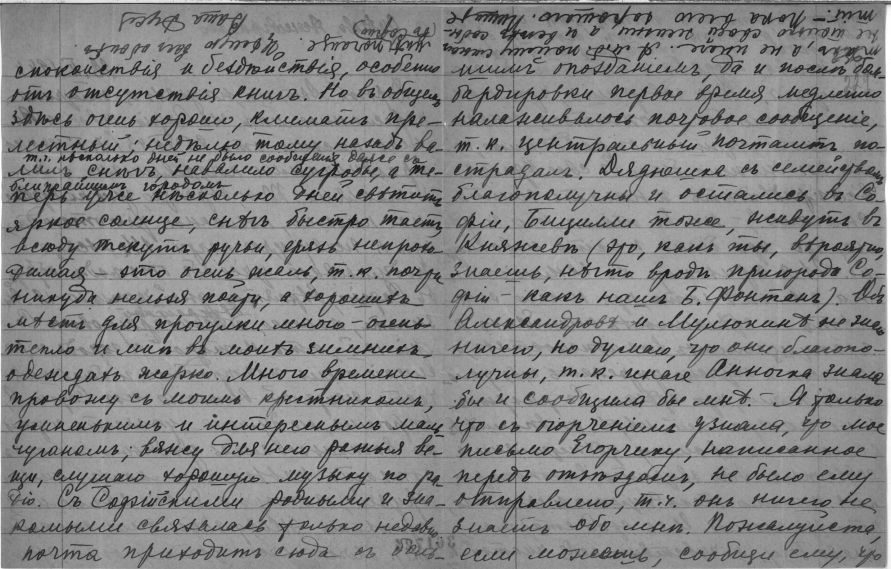 спокойствія и бездѣйствія, особенно
отъ отсутствія книгъ. Но въ общемъ
здѣсь очень хорошо, климатъ пре-
лестный; недѣлю тому назадъ ва-
т.ч. нѣсколько дней не было сообщенія даже съ
лилъ снѣгъ, навалило сугробы, а те-
ближайшимъ городомъ
перь уже нѣсколько дней свѣтитъ
яркое солнце, снѣгъ быстро таетъ
всюду текутъ ручьи, грязь непрохо-
димая – это очень жаль, т.к. почти
никуда нельзя пойти, а хорошихъ
мѣстъ для прогулки много – очень
тепло и мнѣ въ моихъ зимнихъ
одеждахъ жарко. Много времени
провожу съ моимъ крестникомъ,
умненькимъ и интереснымъ маль
чуганомъ; вяжу для него разныя ве-
щи, слушаю хорошую музыку по ра-
діо. Съ Софійскими родными и зна-
комыми связалась только недавно,
почта приходитъ сюда съ боль-
шимъ опозданіемъ, да и послѣ бом-
бардировки первое время медленно
налаживалось почтовое сообщеніе,
т.к. центральный почтамтъ по-
страдалъ. Дядюшка съ семействомъ
благополучны и остались въ Со-
фіи, Бицилли тоже, живутъ въ
Княжевѣ (это, какъ ты, вѣроятно,
знаешь, нѣчто вродѣ пригорода Со-
фіи – какъ нашъ Б. Фонтанъ). Объ
Александровѣ и Мулюкинѣ не знаю
ничего, но думаю, что они благопо-
лучны, т.к. иначе Анночка знала
бы и сообщила бы мнѣ. – Я только
что съ огорченіемъ узнала, что мое
письмо Егорчику, написанное
передъ отъѣздомъ, не было ему
отправлено, т.ч. онъ ничего не
знаетъ обо мнѣ. Пожалуйста,
если можешь, сообщи ему, что
не
Пока всего хорошаго. Пишите
Цѣлую васъ обоихъ
Ваша Дуся